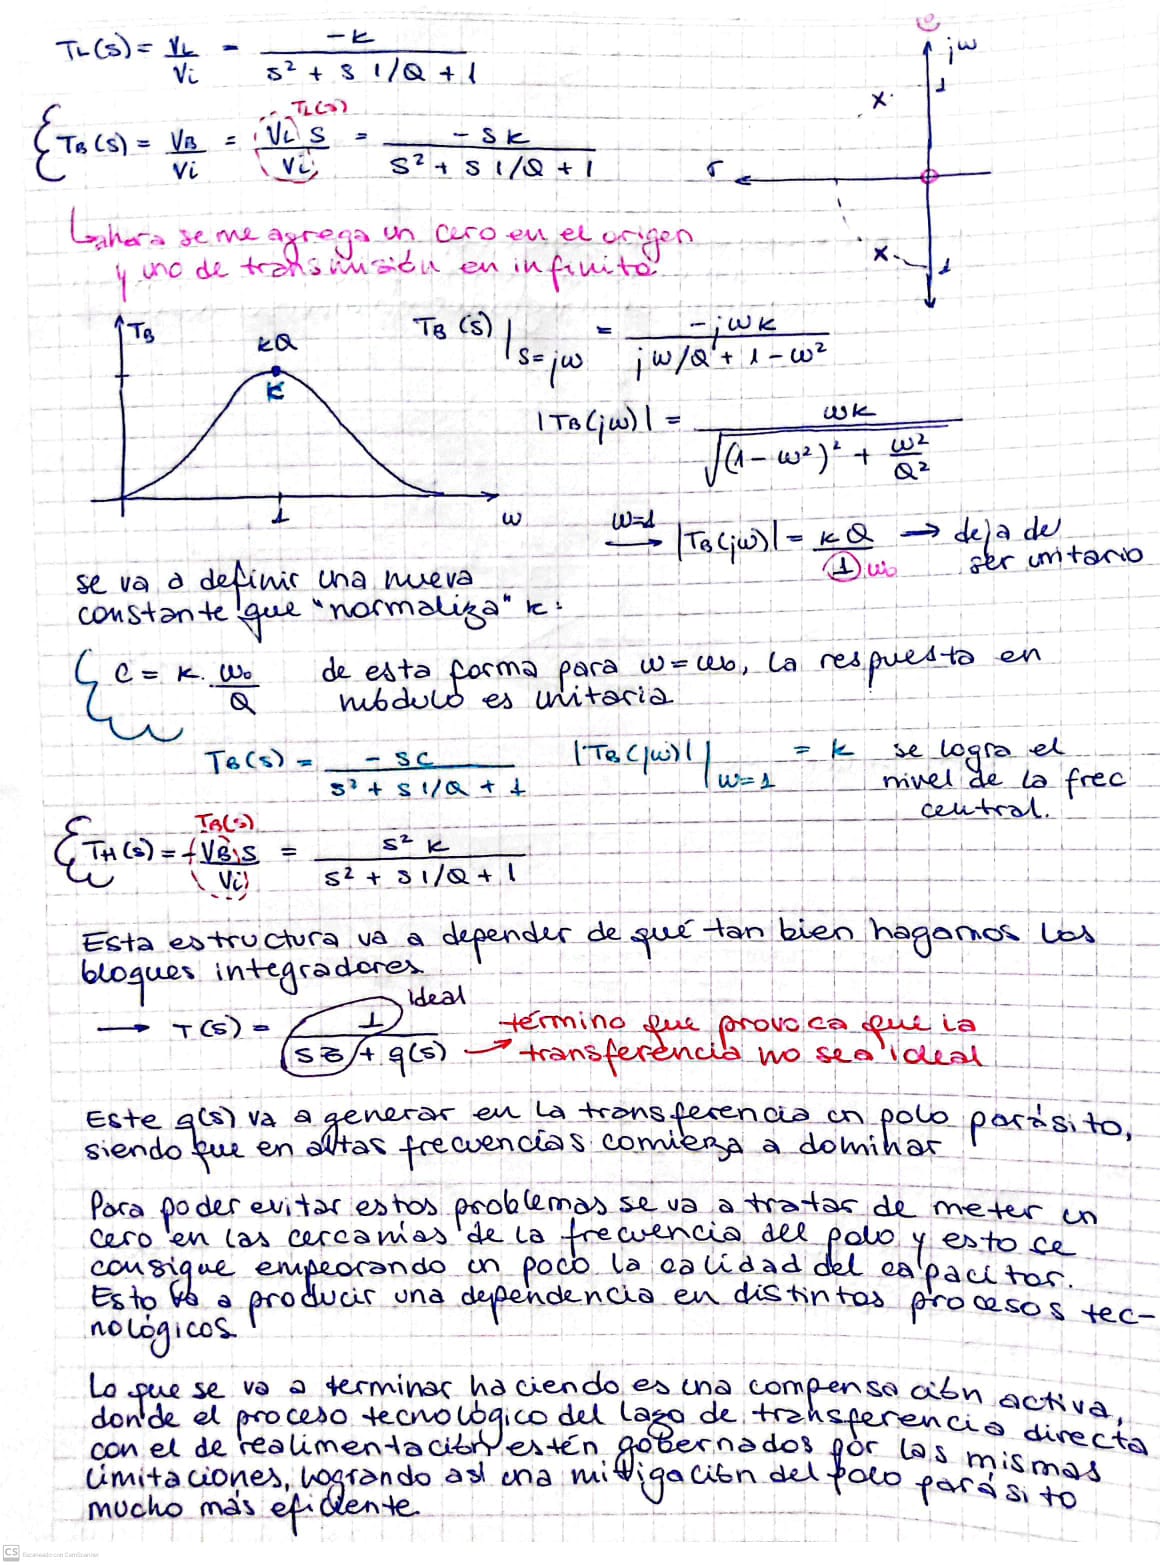 TL(s) = VL/Vi = -k / (s² + s 1/Q + 1)
TB(s) = VB/Vi = VL s/Vi = -sk / (s² + s 1/Q + 1)
TL(s)
jω
1
x
σ
x
1
↳ ahora se me agrega un cero en el origen
y uno de transmisión en infinito
TB
kQ
k
1
ω
TB(s)|s=jω = -jωk / (jω/Q + 1-ω²)
|TB(jω)| = ωk / √((1-ω²)² + ω²/Q²)
ω=1 → |TB(jω)| = kQ/1 ω₀ → deja de
ser unitario
se va a definir una nueva
constante que "normaliza" k:
C = k. ω₀/Q de esta forma para ω=ω₀, la respuesta en
módulo es unitaria
TB(s) = -sC / (s² + s 1/Q + 1) |TB(jω)||ω=1 = k se logra el
nivel de la frec
central.
TB(s)
TH(s) = -(VB/Vi) s = s² k / (s² + s 1/Q + 1)
Esta estructura va a depender de qué tan bien hagamos los
bloques integradores
ideal
→ T(s) = 1 / (sƵ + q(s)) → término que provoca que la
transferencia no sea ideal
Este q(s) va a generar en la transferencia un polo parásito,
siendo que en altas frecuencias comieza a dominar
Para poder evitar estos problemas se va a tratar de meter un
cero en las cercanías de la frecuencia del polo y esto se
consigue empeorando un poco la calidad del capacitor.
Esto va a producir una dependencia en distintos procesos tec-
nológicos
Lo que se va a terminar haciendo es una compensación activa,
donde el proceso tecnológico del lazo de transferencia directa
con el de realimentación estén gobernados por las mismas
limitaciones, logrando así una mitigación del polo parásito
mucho más eficiente.
CS Escaneado con CamScanner